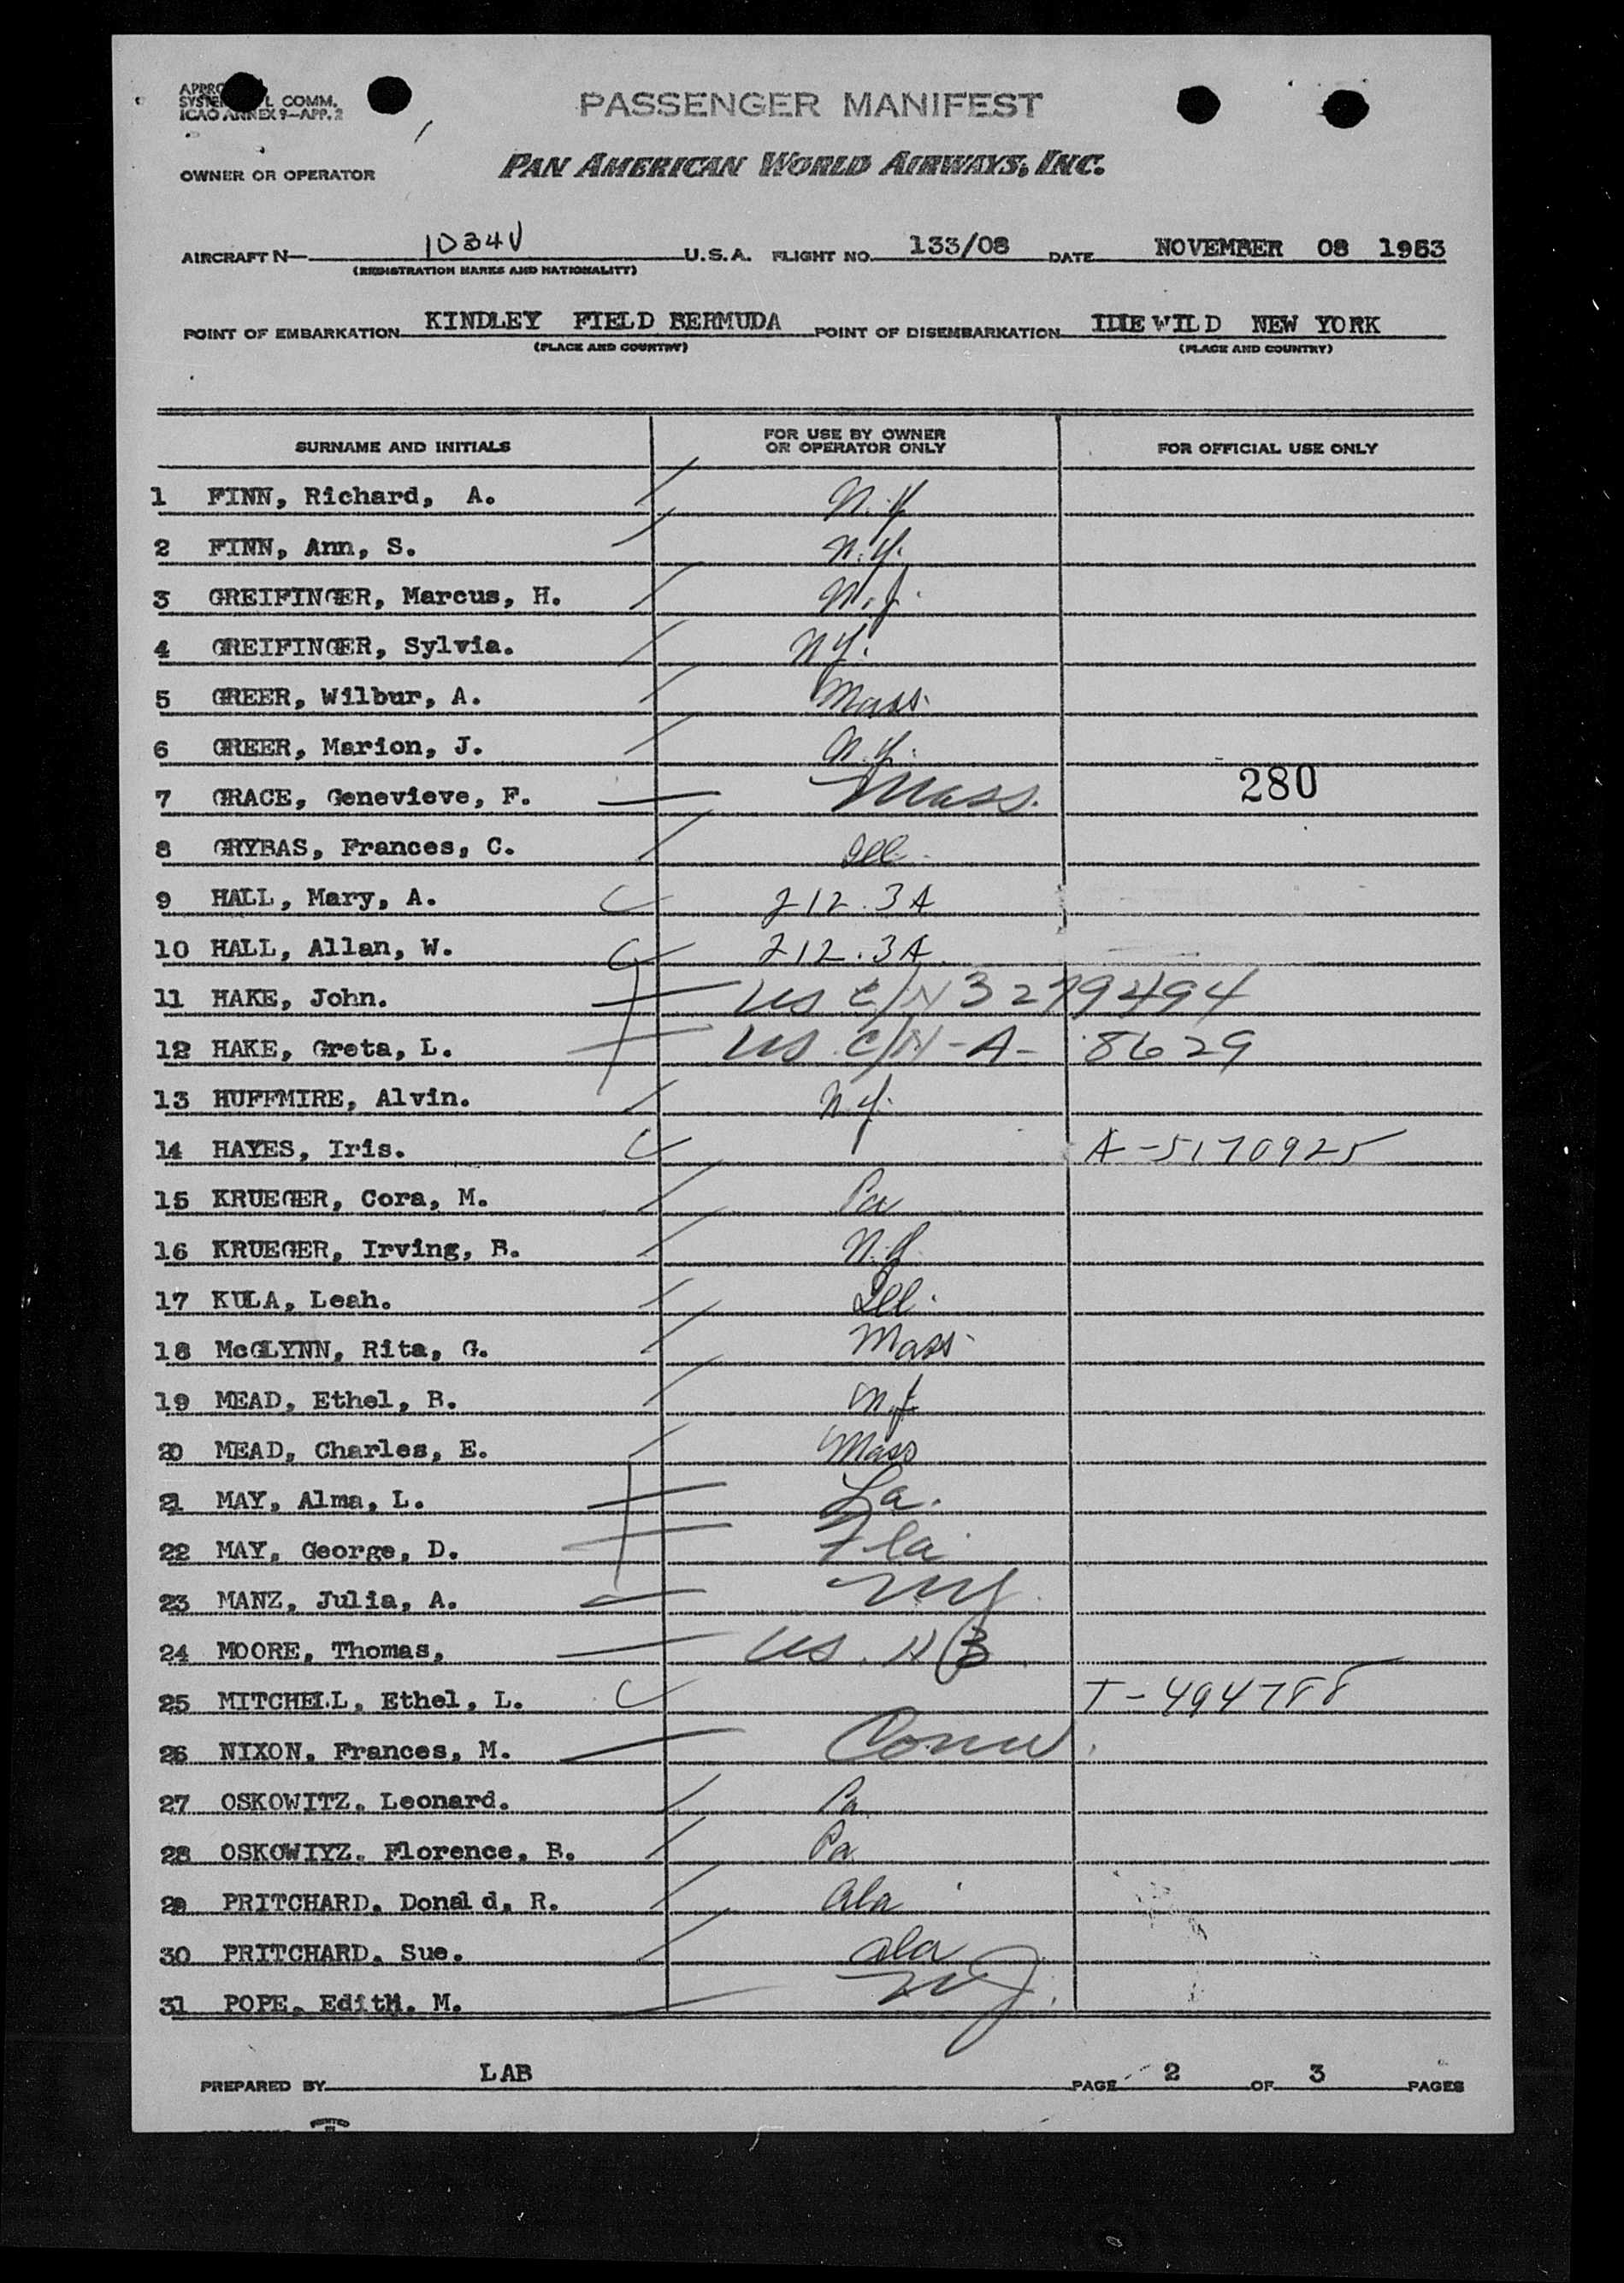 PASSENGER MANIFEST
L COMM.
ICAO ANNEX 9—APP. 2
OWNER OR OPERATOR PAN AMERICAN WORLD AIRWAYS, INC.
AIRCRAFT N— 1034V U.S.A. FLIGHT NO. 133/08 DATE NOVEMBER 08 1953
(REGISTRATION MARKS AND NATIONALITY)
POINT OF EMBARKATION KINDLEY FIELD BERMUDA POINT OF DISEMBARKATION IDLEWILD NEW YORK
(PLACE AND COUNTRY) (PLACE AND COUNTRY)
SURNAME AND INITIALS FOR USE BY OWNER OR OPERATOR ONLY FOR OFFICIAL USE ONLY
1 FINN, Richard, A. N.Y
2 FINN, Ann, S. N.Y.
3 GREIFINGER, Marcus, H. N.J.
4 GREIFINGER, Sylvia. NY.
5 GREER, Wilbur, A. Mass.
6 GREER, Marion, J. N.Y.
7 GRACE, Genevieve, F. Mass. 280
8 GRYBAS, Frances, C. Ill.
9 HALL, Mary, A. 212.3A
10 HALL, Allan, W. 212.3A
11 HAKE, John. US C/N 3279494
12 HAKE, Greta, L. US C/N-A- 8629
13 HUFFMIRE, Alvin. N.Y.
14 HAYES, Iris. A-5170925
15 KRUEGER, Cora, M. Pa
16 KRUEGER, Irving, B. N.Y.
17 KULA, Leah. Ill.
18 McGLYNN, Rita, G. Mass
19 MEAD, Ethel, B. N.J
20 MEAD, Charles, E. Mass
21 MAY, Alma, L. La.
22 MAY, George, D. Fla
23 MANZ, Julia, A. NY
24 MOORE, Thomas, US.
25 MITCHELL, Ethel, L. T-494788
26 NIXON, Frances, M. Conn.
27 OSKOWITZ. Leonard. Pa
28 OSKOWIYZ. Florence, B. Pa
29 PRITCHARD. Donald. R. Ala
30 PRITCHARD. Sue. Ala
31 POPE. Edith. M. NJ.
PREPARED BY LAB PAGE 2 OF 3 PAGES